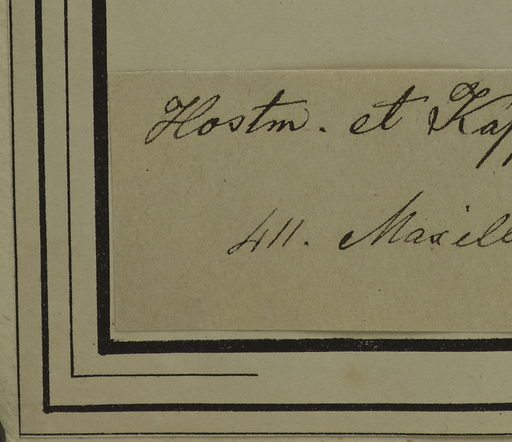 Hostm. et Kap
411. Maxill